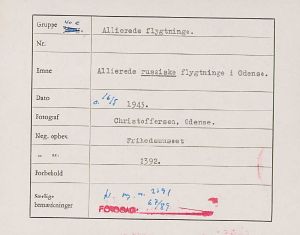 Gruppe 40 e Allierede flygtninge.
Nr.
Emne Allierede russiske flygtninge i Odense.
Dato d. 16/5 1945.
Fotograf Christoffersen, Odense.
Neg. opbev. Frihedsmuseet
„ nr. 1392.
Forbehold
Særlige
bemærkninger